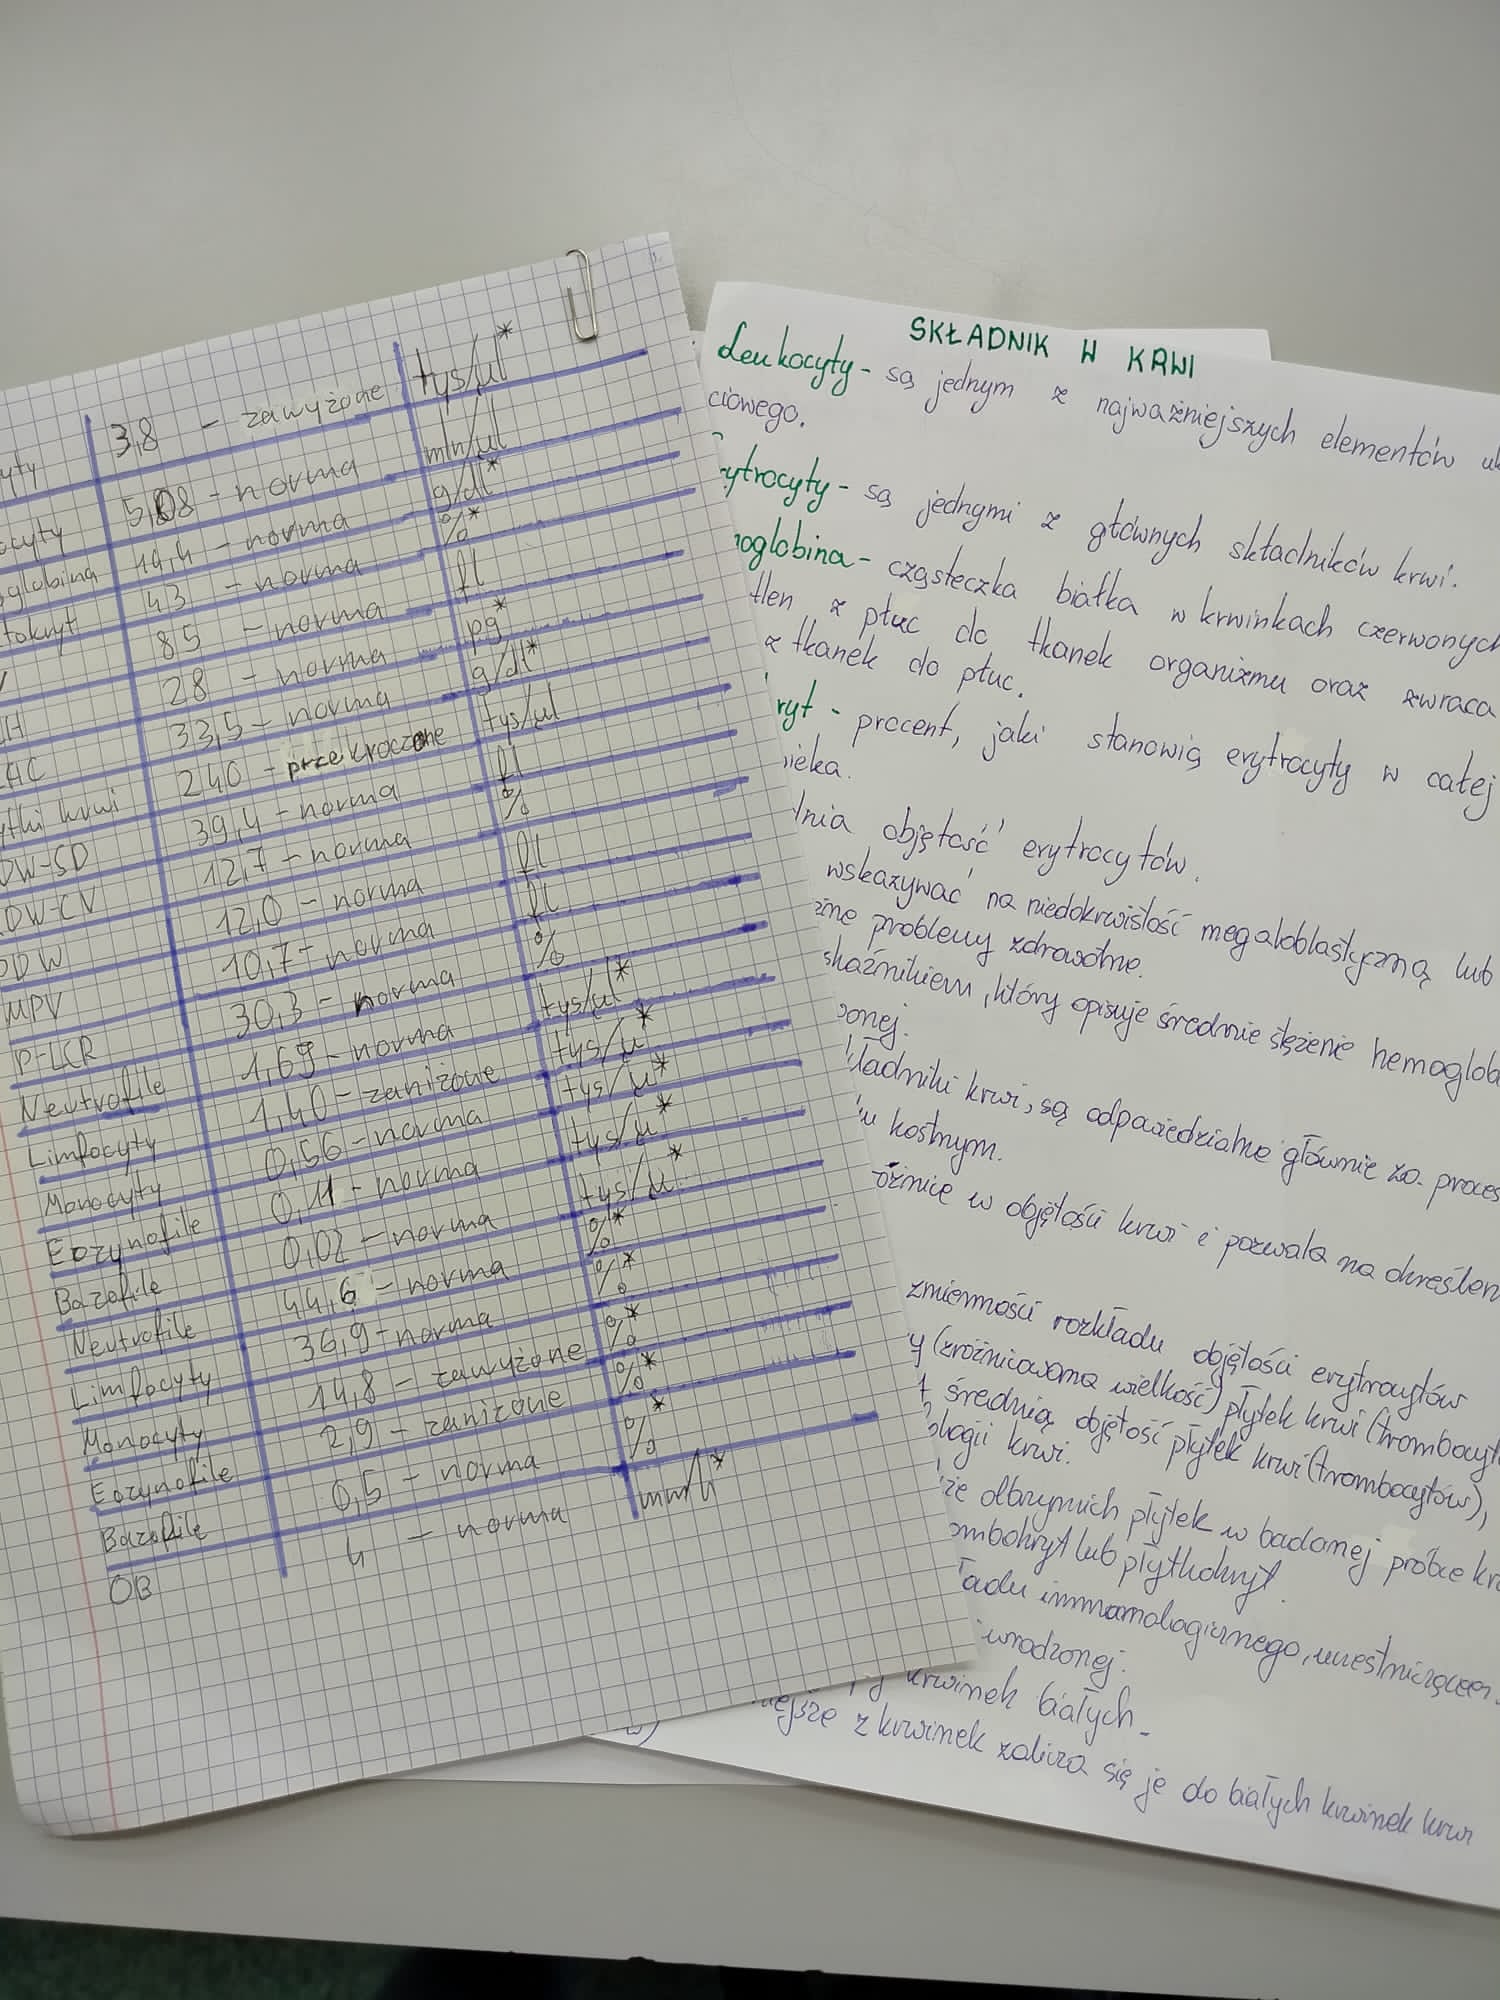 3,8 - zawyżone tys/µl*
5,08 - norma mln/µl
14,4 - norma g/dl*
43 - norma %*
85 - norma fl
28 - norma pg*
33,5 - norma g/dl*
240 - przekroczone tys/µl
39,4 - norma fl
12,7 - norma %
PDW 12,0 - norma fl
MPV 10,7 - norma fl
P-LCR 30,3 - norma %
Neutrofile 1,69 - norma tys/µl*
Limfocyty 1,40 - zaniżone tys/µ*
Monocyty 0,56 - norma tys/µ*
Eozynofile 0,11 - norma tys/µ*
Bazofile 0,02 - norma tys/µ*
Neutrofile 44,6 - norma %*
Limfocyty 36,9 - norma %*
Monocyty 14,8 - zawyżone %*
Eozynofile 2,9 - zaniżone %*
Bazofile 0,5 - norma %*
OB 4 - norma mm/h*
SKŁADNIK W KRWI
Leukocyty - są jednym z najważniejszych elementów
ciowego.
rytrocyty - są jednymi z głównych składników krwi.
moglobina - cząsteczka białka w krwinkach czerwonych
tlen z płuc do tkanek organizmu oraz zwraca
z tkanek do płuc.
kryt - procent, jaki stanowią erytrocyty w całej
wieka.
dnia objętość erytrocytów.
wskazywać na niedokrwistość megaloblastyczną lub
żne problemy zdrowotne.
skaźnikiem, który opisuje średnie stężenie hemoglob
wonej.
kładniki krwi, są odpowiedzialne głównie za proces
ku kostnym.
różnice w objętości krwi i pozwala na określen
zmienności rozkładu objętości erytrocytów
y (zróżnicowana wielkość) płytek krwi (trombocyt
t średnią objętość płytek krwi (trombocytów),
ologii krwi.
że olbrzymich płytek w badanej próbce kr
ombokryt lub płytkokryt.
ładu immunologicznego, uczestniczącem
wrodzonej.
krwinek białych.
niejsze z krwinek zalicza się je do białych krwinek krwi